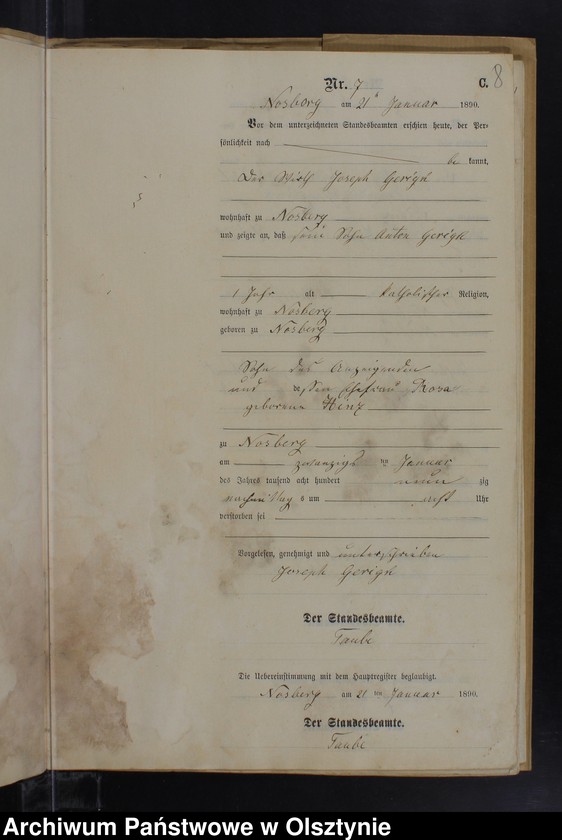 8
Nr. 7 C.
Nosberg am 21 Januar 1890.
Vor dem unterzeichneten Standesbeamten erschien heute, der Per-
sönlichkeit nach
be kannt,
Der Wirth Joseph Gerigk
wohnhaft zu Nosberg
und zeigte an, daß sein Sohn Anton Gerigk
1 Jahr alt katholischer Religion,
wohnhaft zu Nosberg
geboren zu Nosberg
Sohn des Anzeigenden
und dessen Ehefrau Rosa
geborene Hinz
zu Nosberg
am zwanzigsten Januar
des Jahres tausend acht hundert neun zig
nachmittags um acht Uhr
verstorben sei
Vorgelesen, genehmigt und unterschrieben
Joseph Gerigk
Der Standesbeamte.
Taube
Die Uebereinstimmung mit dem Hauptregister beglaubigt.
Nosberg am 21 ten Januar 1890.
Der Standesbeamte.
Taube
Archiwum Państwowe w Olsztynie